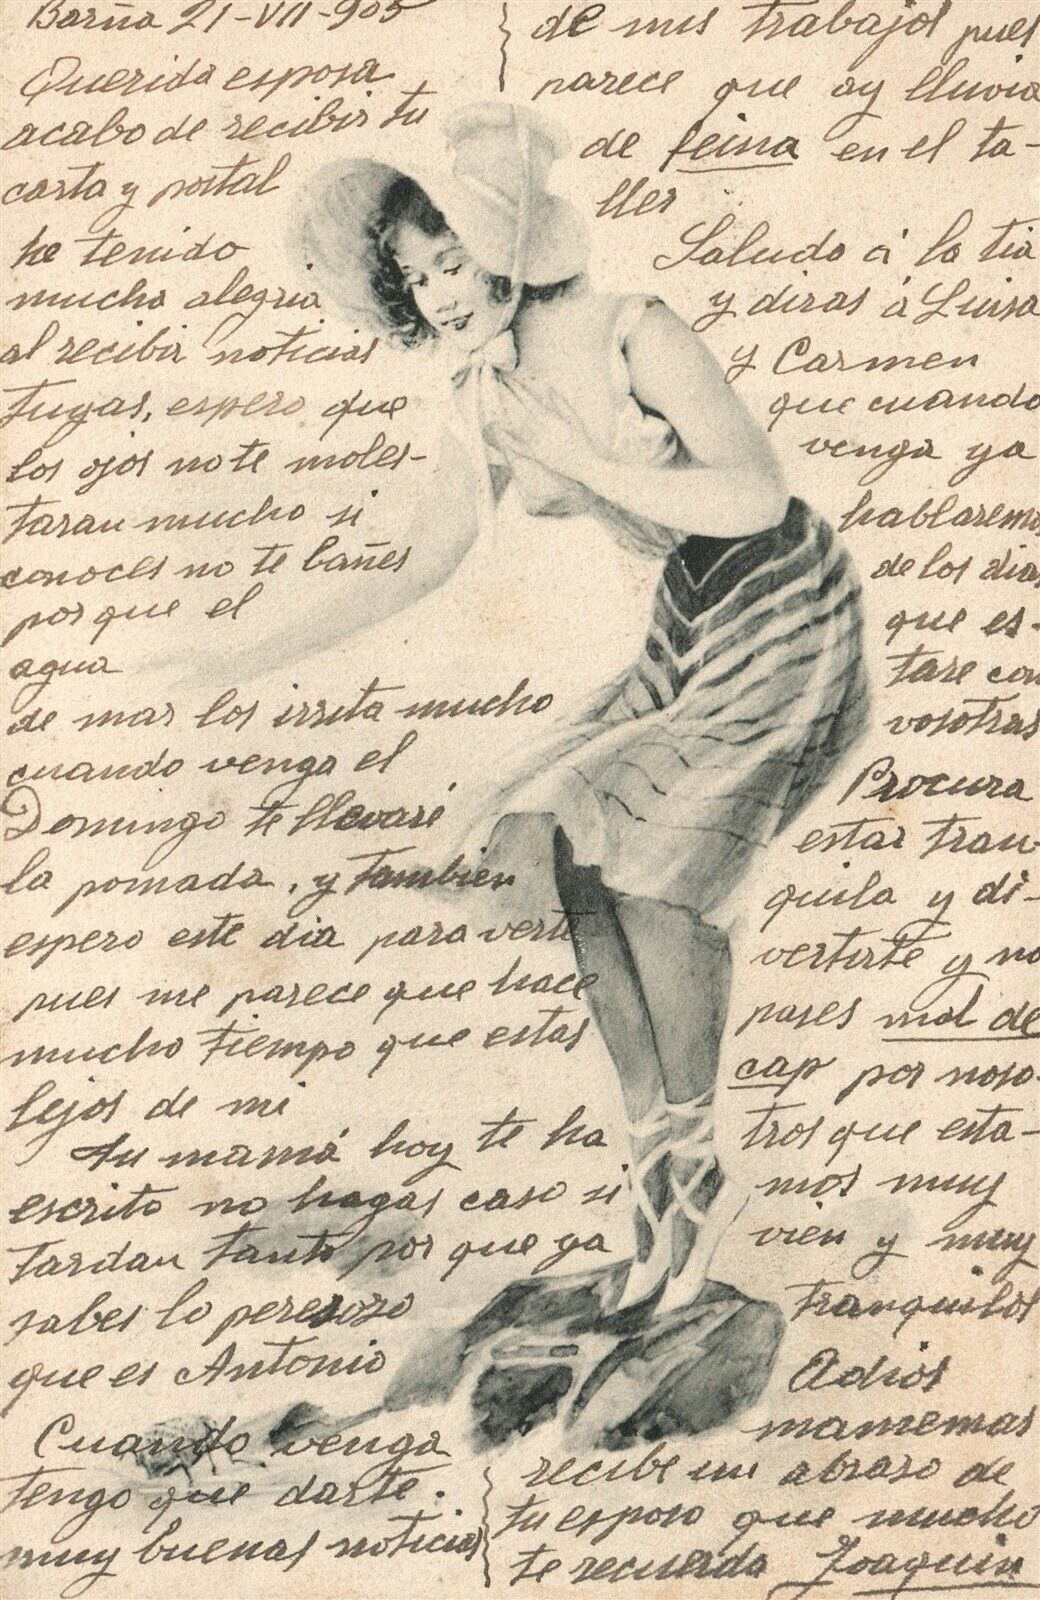 Barña 21-VII-905
Querida esposa
acabo de recibir tu
carta y postal
he tenido
mucha alegria
al recibir noticias
tuyas, espero que
los ojos no te moles-
taran mucho si
conoces no te bañes
por que el
agua
de mar los irrita mucho
cuando venga el
Domingo te llevaré
la pomada, y tambien
espero este dia para verte
pues me parece que hace
mucho tiempo que estas
lejos de mi
Tu mamá hoy te ha
escrito no hagas caso si
tardan tanto por que ya
sabes lo peresozo
que es Antonio
Cuando venga
tengo que darte
muy buenas noticias
de mis trabajos pues
parece que ay lluvia
de feina en el ta-
ller
Saludo á la tia
y diras á Luisa
y Carmen
que cuando
venga ya
hablaremos
de los dias
que es-
tare con
vosotras
Procura
estar tran-
quila y di-
vertirte y no
pases mal de
cap por noso-
tros que esta-
mos muy
vien y muy
tranquilos
Adios
mamemas
recibe un abraso de
tu esposo que mucho
te recuerda Joaquin